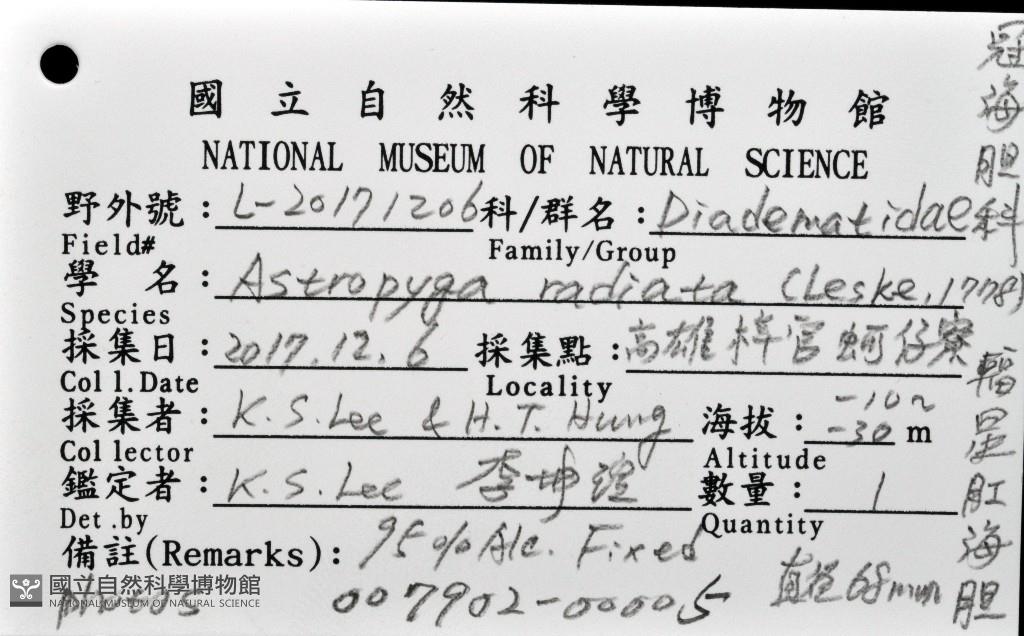 國立自然科學博物館
NATIONAL MUSEUM OF NATURAL SCIENCE
野外號：L-20171206 科/群名：Diadematidae科
Field# Family/Group
學名：Astropyga radiata (Leske, 1778)
Species
採集日：2017.12.6 採集點：高雄梓官蚵仔寮
Coll.Date Locality
採集者：K.S.Lee & H.T. Hung 海拔：-10~-30 m
Collector Altitude
鑑定者：K.S.Lee 李坤瑄 數量：1
Det.by Quantity
備註(Remarks)：95% Alc. Fixed
007902-00005 直徑68mm
冠海胆科
輻星肛海胆
國立自然科學博物館
NATIONAL MUSEUM OF NATURAL SCIENCE